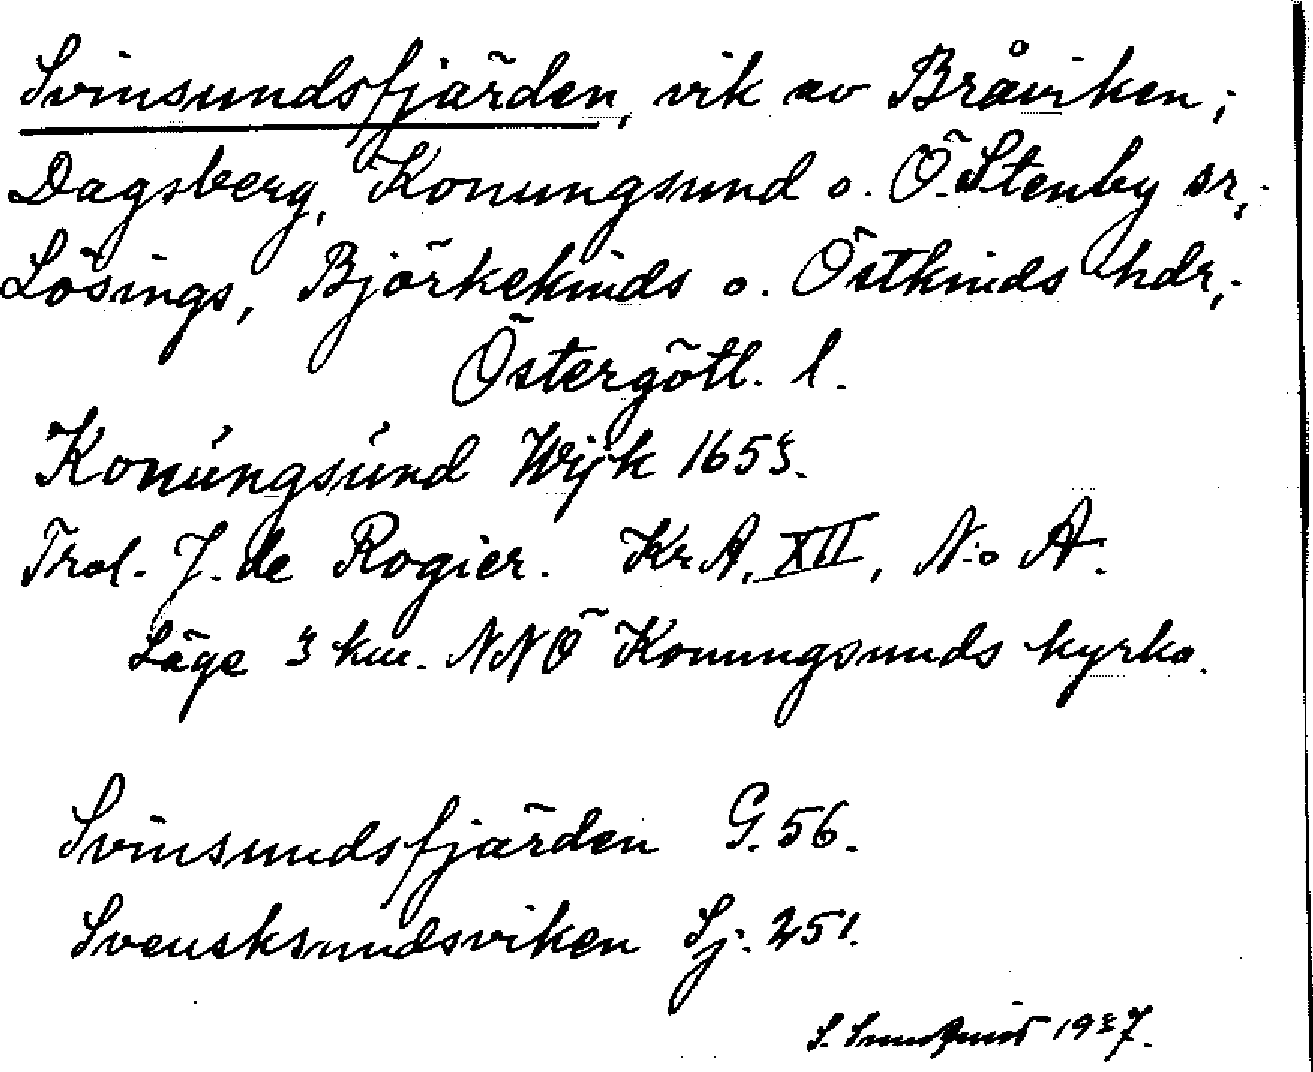 Svinsundsfjärden, vik av Bråviken;
Dagsberg, Konungsund o. Ö. Stenby sr,
Lösings, Björkekinds o. Östkinds hdr,
Östergötl. l.
Konúngsúnd Wijk 1653.
Trol. J. de Rogier. Kr A, XII, N:o A.
Läge 3 km. NNÖ Konungsunds kyrka.
Svinsundsfjärden G. 56.
Svensksundsviken Sj. 251.
S. 1937.